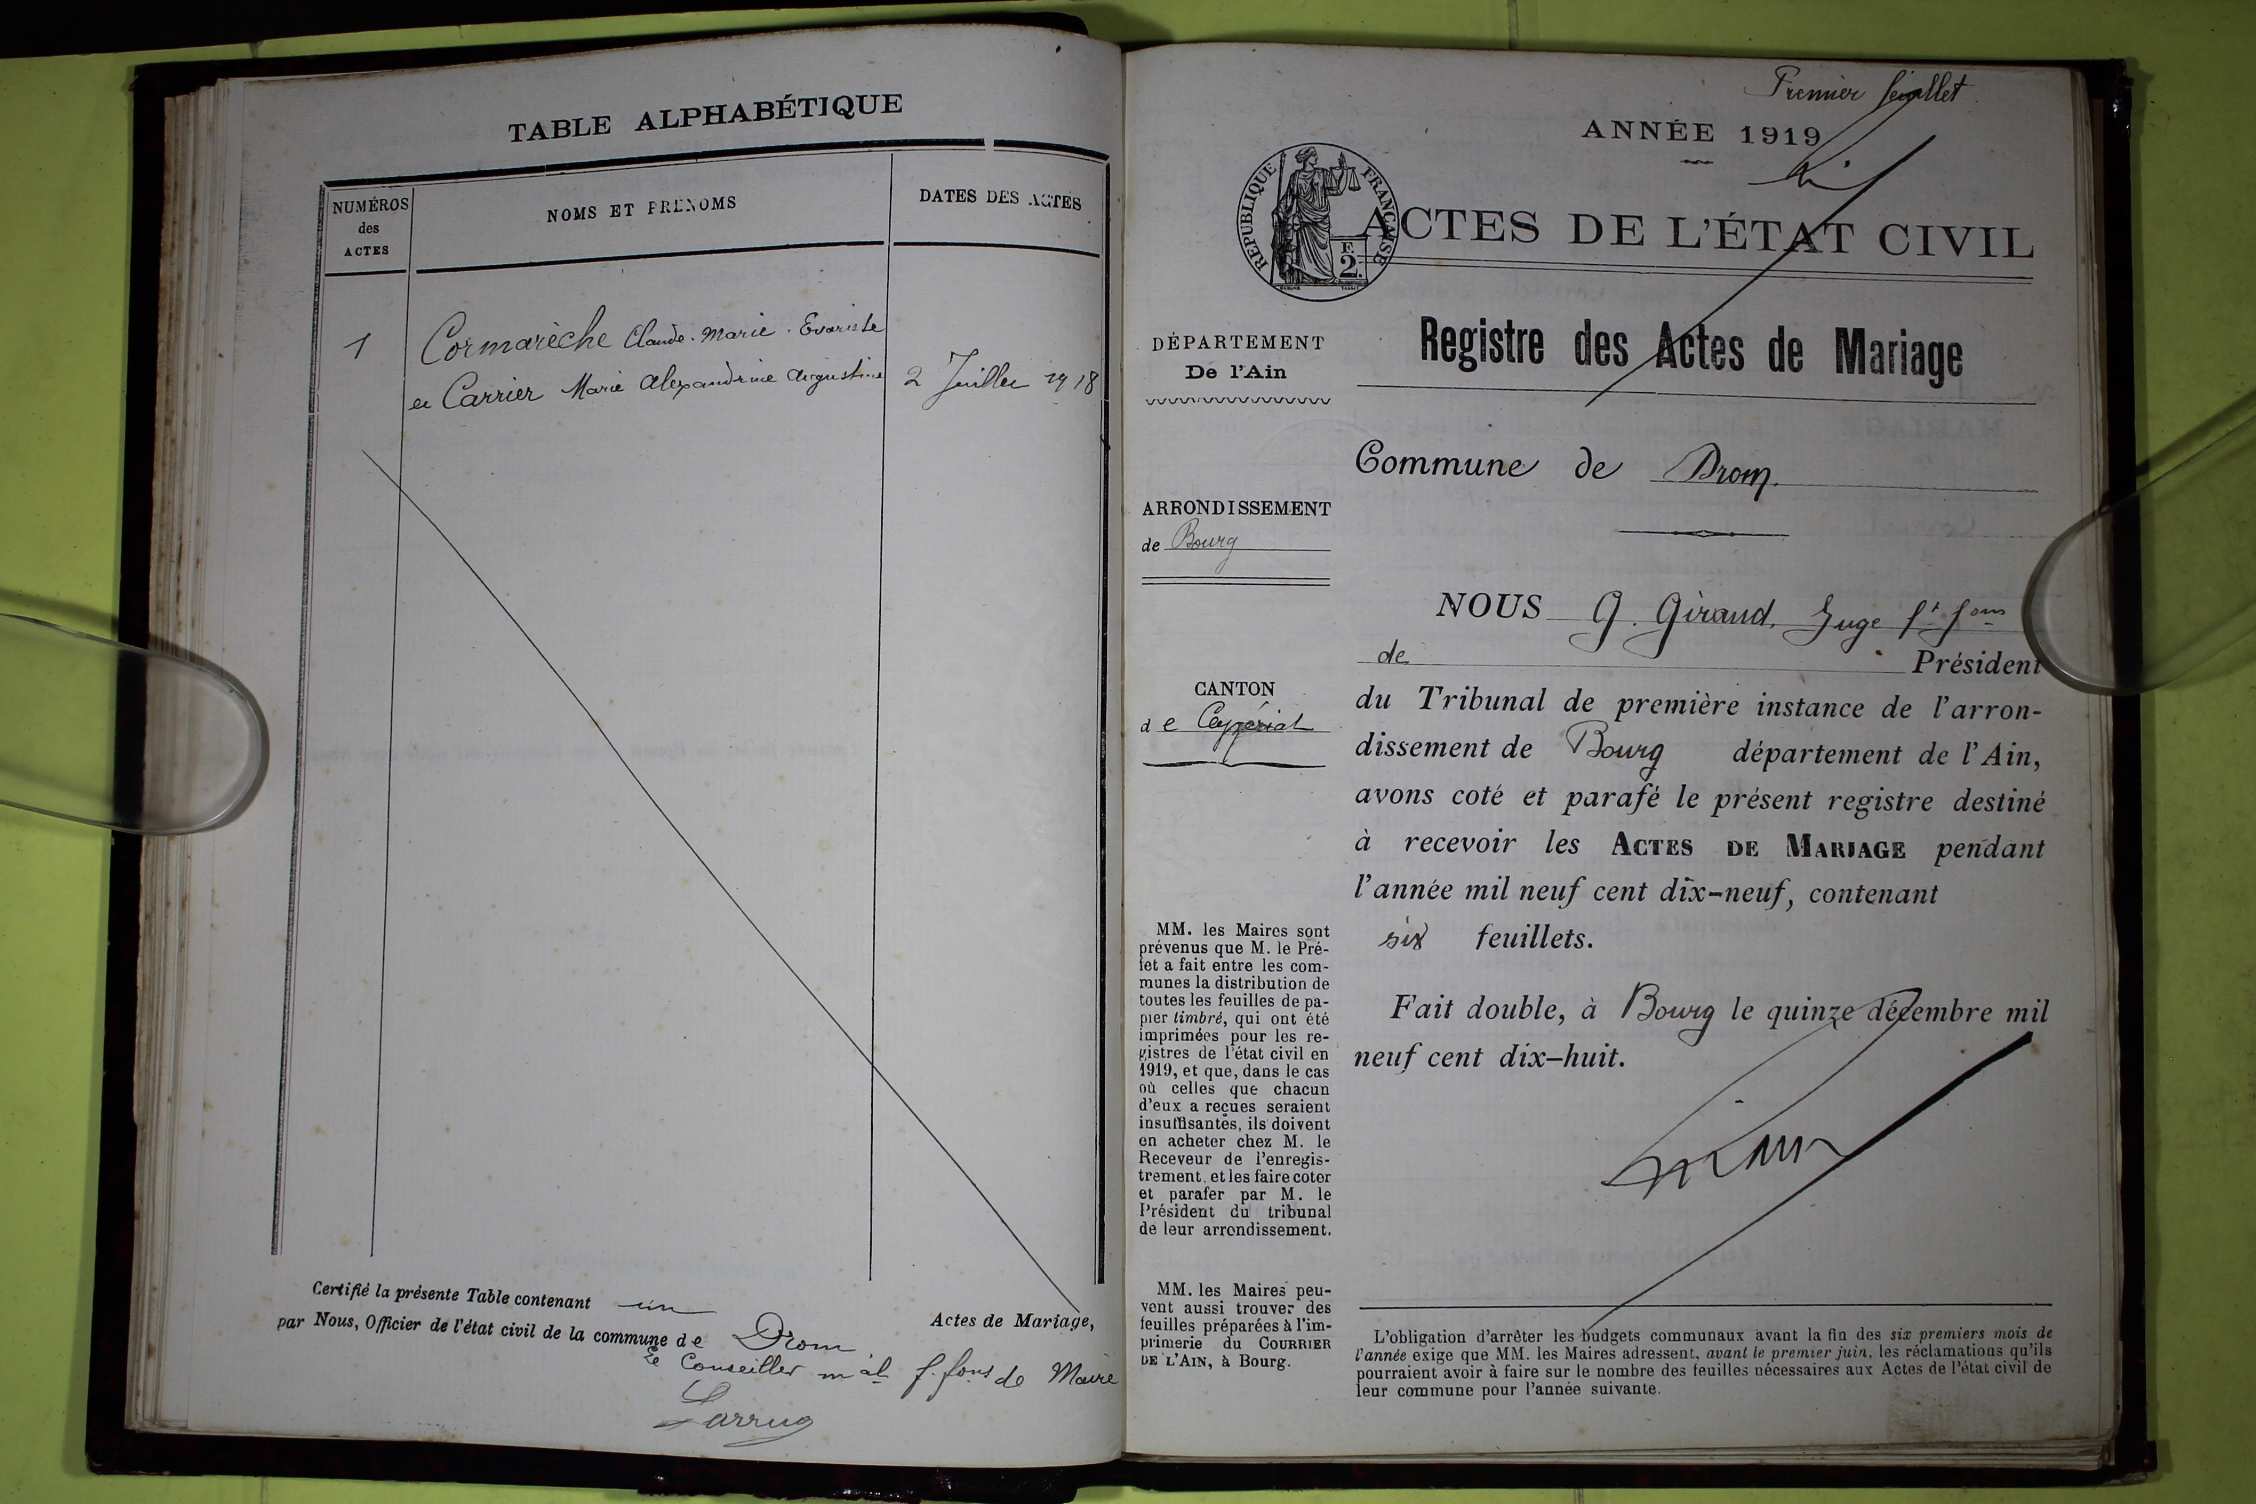 TABLE ALPHABÉTIQUE
NUMÉROS des ACTES
NOMS ET PRÉNOMS
DATES DES ACTES
1
Cormarèche Claude-Marie-Evariste
et Carrier Marie Alexandrine Augustine
2 Juillet 1918
Certifié la présente Table contenant un Actes de Mariage,
par Nous, Officier de l'état civil de la commune de Drom
Le Conseiller mal f. fons de Maire
Premier feuillet
ANNÉE 1919
RÉPUBLIQUE FRANÇAISE
E.
2.
ACTES DE L'ÉTAT CIVIL
Registre des Actes de Mariage
DÉPARTEMENT
De l'Ain
ARRONDISSEMENT
de Bourg
CANTON
de Ceyzériat
MM. les Maires sont
prévenus que M. le Pré-
fet a fait entre les com-
munes la distribution de
toutes les feuilles de pa-
pier timbré, qui ont été
imprimées pour les re-
gistres de l'état civil en
1919, et que, dans le cas
où celles que chacun
d'eux a reçues seraient
insuffisantes, ils doivent
en acheter chez M. le
Receveur de l'enregis-
trement, et les faire coter
et parafer par M. le
Président du tribunal
de leur arrondissement.
MM. les Maires peu-
vent aussi trouver des
feuilles préparées à l'im-
primerie du COURRIER
DE L'AIN, à Bourg.
Commune de Drom.
NOUS G. Giraud, Juge ft fons
de Président
du Tribunal de première instance de l'arron-
dissement de Bourg département de l'Ain,
avons coté et parafé le présent registre destiné
à recevoir les ACTES DE MARIAGE pendant
l'année mil neuf cent dix-neuf, contenant
six feuillets.
Fait double, à Bourg le quinze décembre mil
neuf cent dix-huit.
L'obligation d'arrêter les budgets communaux avant la fin des six premiers mois de
l'année exige que MM. les Maires adressent, avant le premier juin, les réclamations qu'ils
pourraient avoir à faire sur le nombre des feuilles nécessaires aux Actes de l'état civil de
leur commune pour l'année suivante.